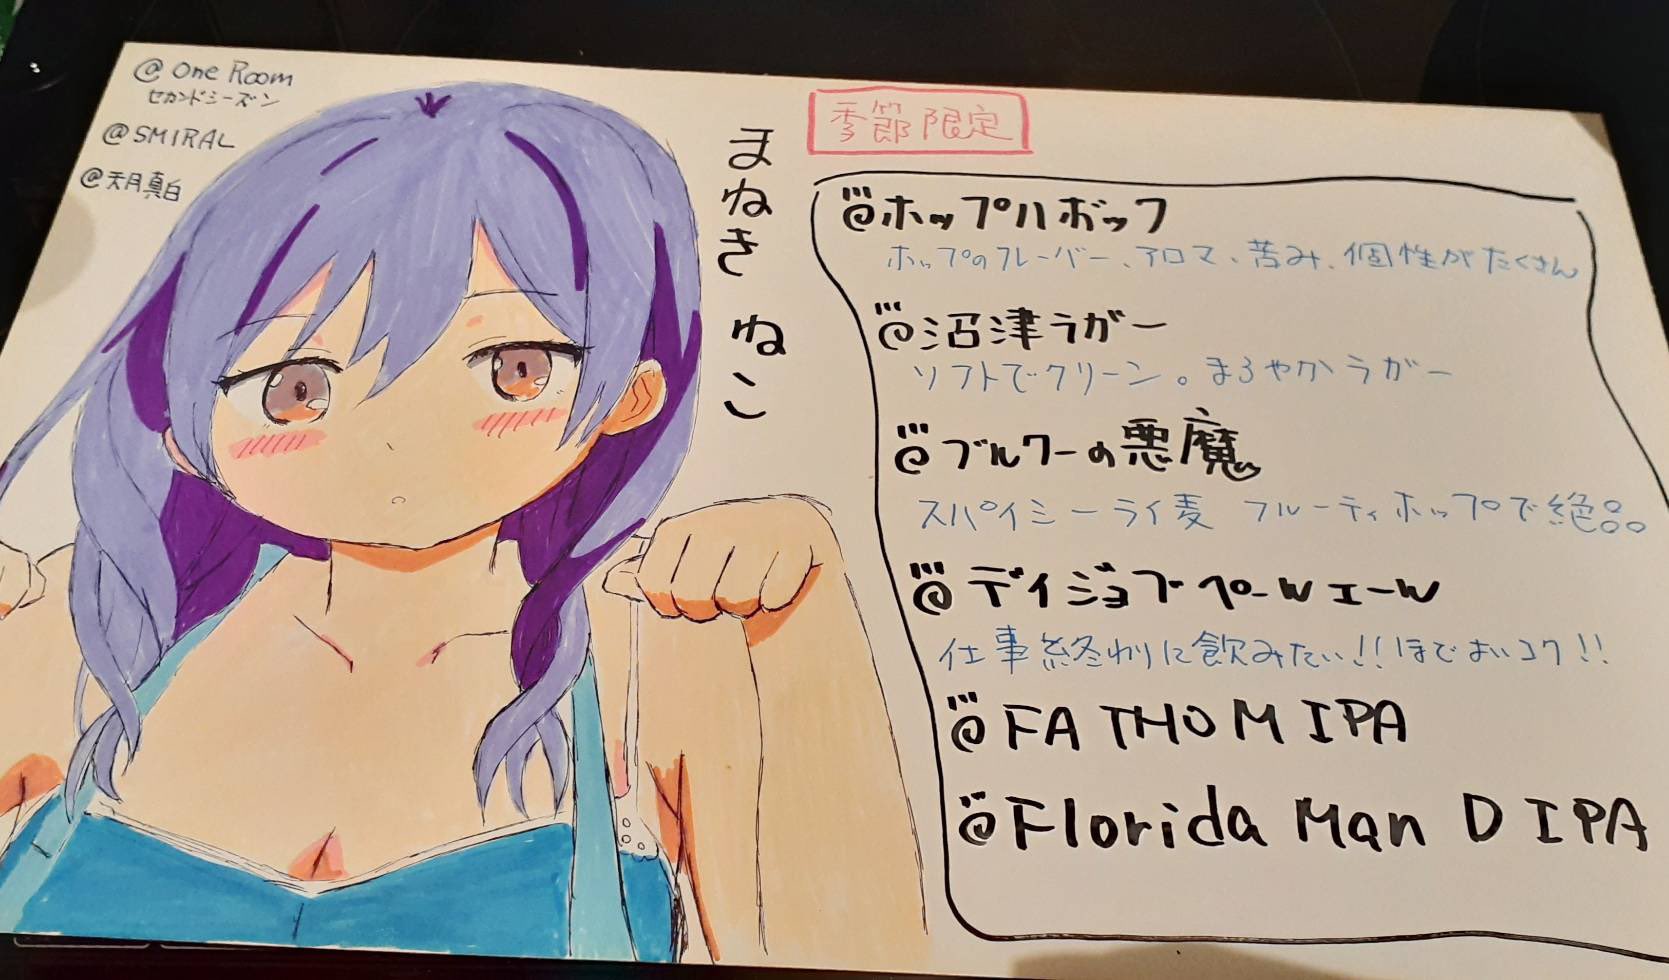 @ One Room
セカンドシーズン
@SMIRAL
@天月真白
まねき ねこ
季節限定
ホップハボック
ホップのフレーバー、アロマ、苦み、個性がたくさん
沼津ラガー
ソフトでクリーン。まろやかラガー
ブルワーの悪魔
スパイシーライ麦 フルーティホップで絶品
デイジョブペールエール
仕事終わりに飲みたい!!ほどよいコク!!
FATHOM IPA
Florida Man DIPA